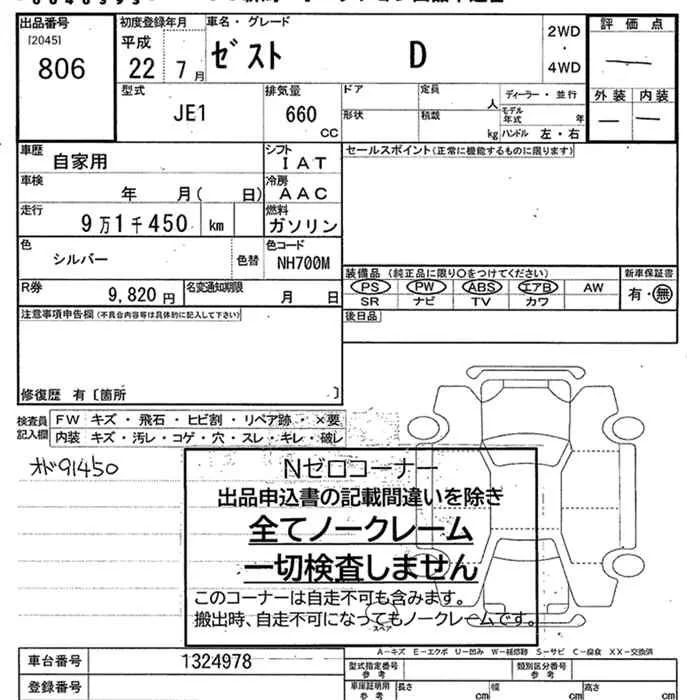 出品番号
[2045]
806
初度登録年月
平成
22 7月
車名・グレード
ゼスト D
2WD
・
4WD
評価点
外装 内装
型式
JE1
排気量
660
CC
ドア
形状
定員
人
積載
kg
ディーラー・並行
モデル年式 年
ハンドル 左・右
車歴
自家用
シフト
IAT
車検
年 月( 日)
冷房
AAC
走行
9万1千450 km
燃料
ガソリン
色
シルバー
色替
色コード
NH700M
R券
9,820円
名変通知期限
月 日
セールスポイント(正常に機能するものに限ります)
装備品(純正品に限り○をつけてください)
PS PW ABS エアB AW
SR ナビ TV カワ
新車保証書
有・無
後日品
注意事項申告欄(不具合内容等は具体的に記入して下さい)
修復歴 有〔箇所 〕
検査員記入欄
FW キズ・飛石・ヒビ割・リペア跡・×要
内装 キズ・汚レ・コゲ・穴・スレ・キレ・破レ
91450
Nゼロコーナー
出品申込書の記載間違いを除き
全てノークレーム
一切検査しません
このコーナーは自走不可も含みます。
搬出時、自走不可になってもノークレームです。
スペア
A-キズ E-エクボ U-凹み W-補修跡 S-サビ C-腐食 XX-交換済
車台番号
1324978
登録番号
型式指定番号
参考
類別区分番号
参考
車庫証明用
参考
長さ cm
幅 cm
高さ cm